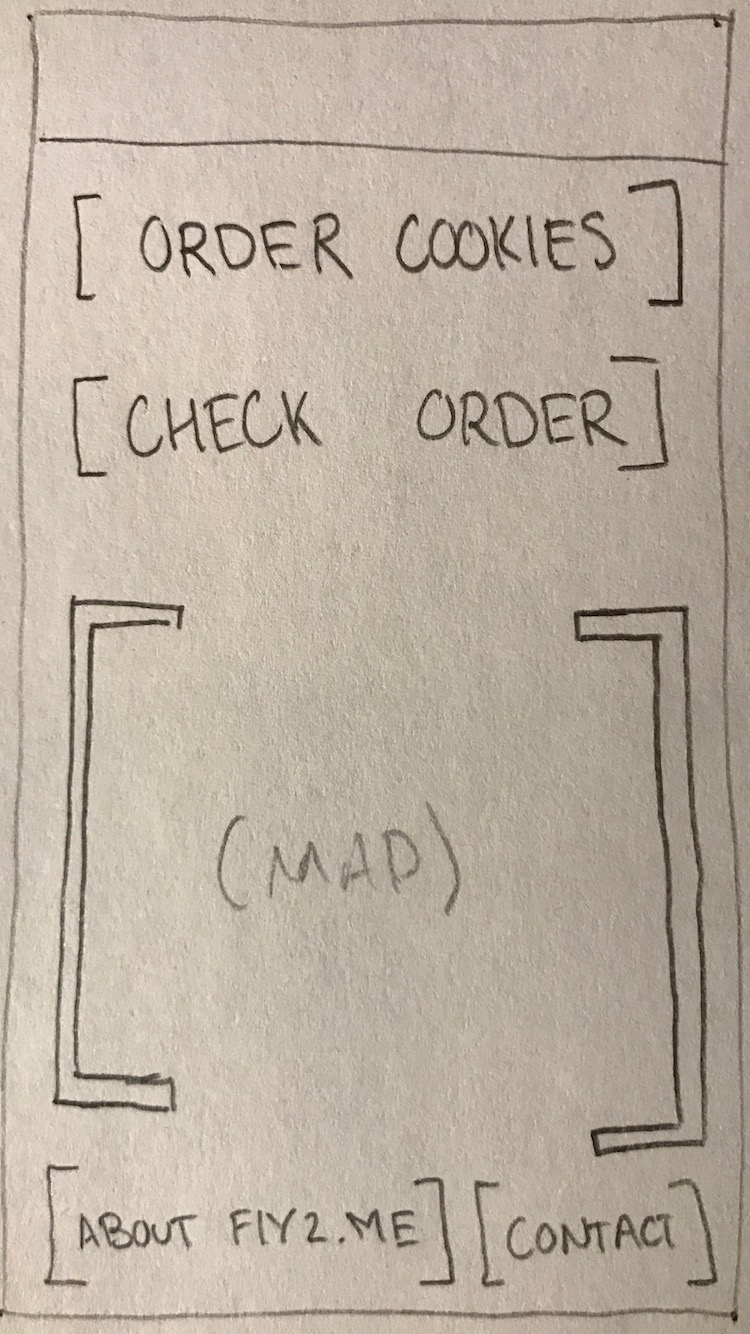 [ ORDER COOKIES ]
[ CHECK ORDER ]
(MAP)
[ ABOUT FIY2.ME ] [ CONTACT ]